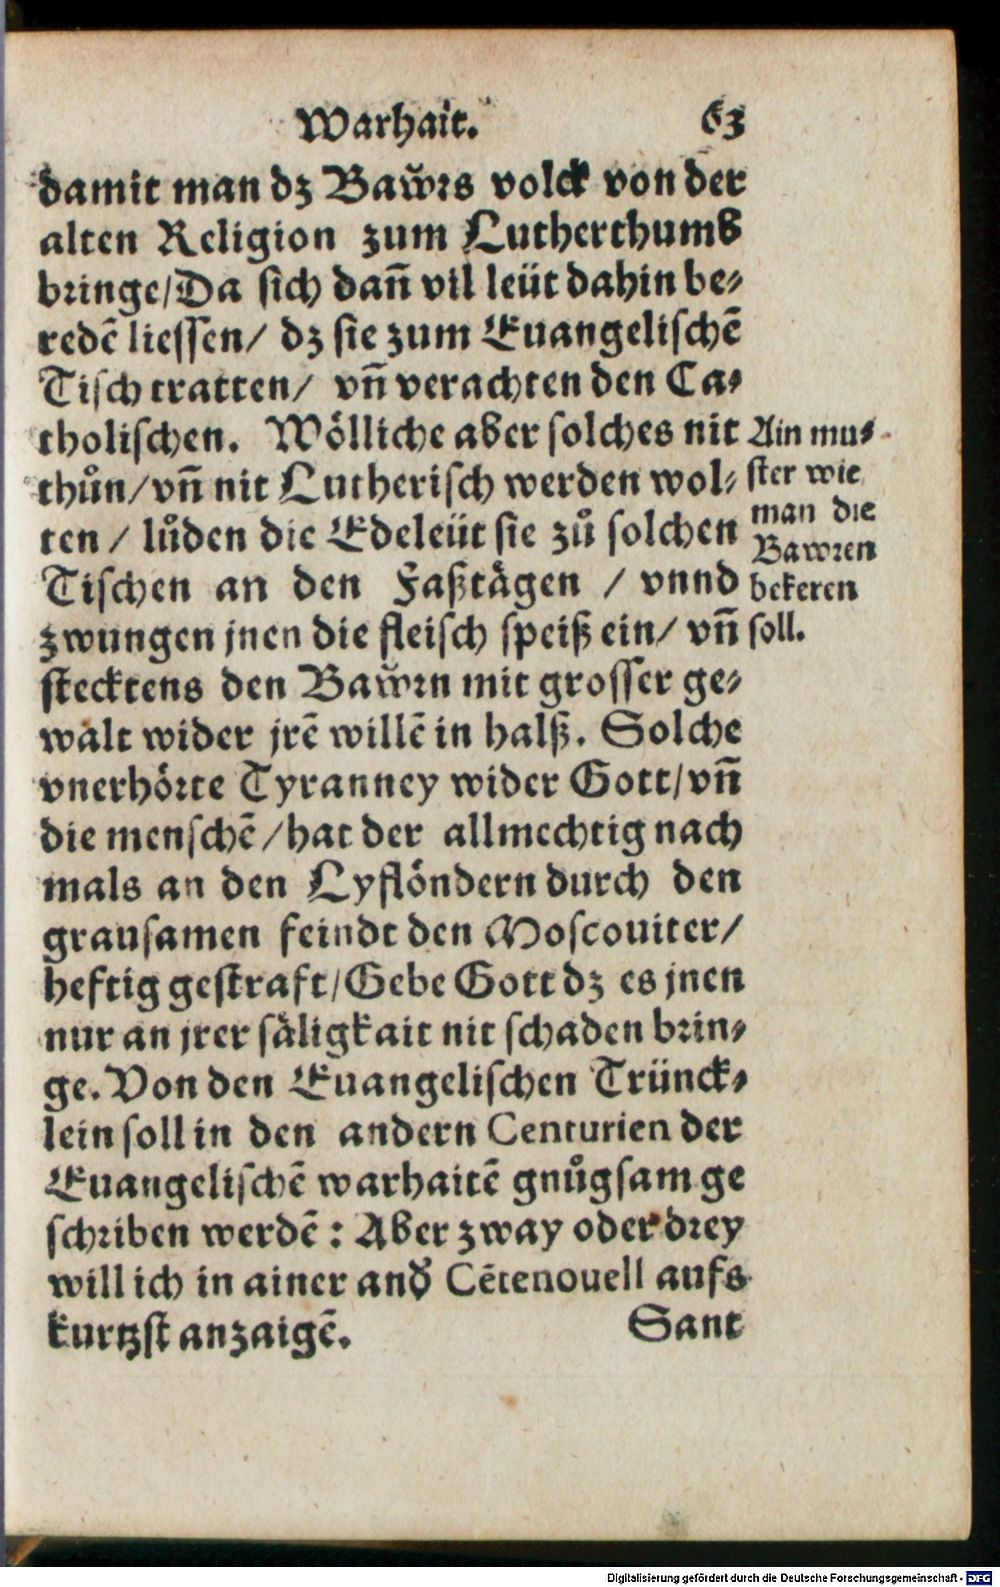 Warhait. 63
damit man dz Baw̌rs volck von der
alten Religion zum Lutherthumb
bringe/Da sich dañ vil leüt dahin be⸗
redē liessen/ dz sie zum Euangelischē
Tisch tratten/ vñ verachten den Ca⸗
tholischen. Wölliche aber solches nit
thůn/vñ nit Lutherisch werden wol⸗
ten / lůden die Edeleüt sie zů solchen
Tischen an den Faßtägen / vnnd
zwungen jnen die fleisch speiß ein/ vñ
stecktens den Baw̌rn mit grosser ge⸗
walt wider jrē willē in halß. Solche
vnerhörte Tyranney wider Gott/vñ
die menschē/hat der allmechtig nach
mals an den Lyflöndern durch den
grausamen feindt den Moscouiter/
heftig gestraft/Gebe Gott dz es jnen
nur an jrer säligkait nit schaden brin⸗
ge. Von den Euangelischen Trünck⸗
lein soll in den andern Centurien der
Euangelischē warhaitē gnůgsam ge
schriben werdē: Aber zway oder drey
will ich in ainer and̕ Cētenouell aufs
kurtzst anzaigē. Sant
Ain mu⸗
ster wie
man die
Bawren
bekeren
soll.
Digitalisierung gefördert durch die Deutsche Forschungsgemeinschaft - DFG